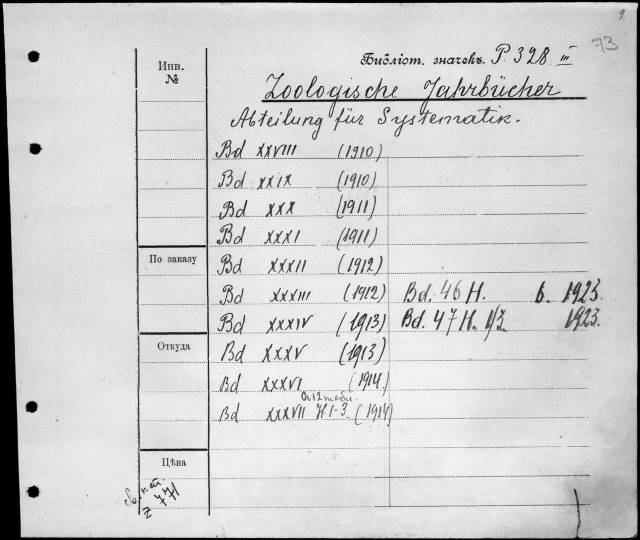 9.
73
Инв.
№
Библіот. значекъ P. 328 III
Zoologische Jahrbücher
Abteilung für Systematik.
Bd XXVIII (1910)
Bd XXIX (1910)
Bd XXX (1911)
Bd XXXI (1911)
По заказу
Bd XXXII (1912)
Bd XXXIII (1912) Bd. 46 H. 6. 1923.
Bd XXXIV (1913) Bd. 47 H. 1/3. 1923.
Откуда
Bd XXXV (1913)
Bd XXXVI (1914)
Bd XXXVII H 1-3 (1914)
Цѣна
Z 771